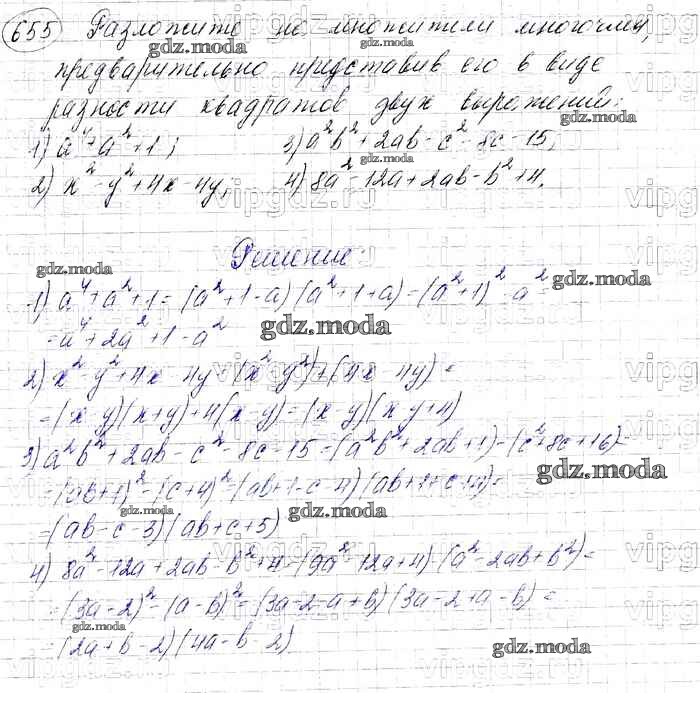 655 Разложите на множители многочлен,
предварительно представив его в виде
разности квадратов двух выражений:
1) a⁴+a²+1; 3) a²b²+2ab-c²-8c-15;
2) x²-y²+4x-4y; 4) 8a²-12a+2ab-b²+4.
Решение:
1) a⁴+a²+1=(a²+1-a)(a²+1+a)=(a²+1)²-a²=
=a⁴+2a²+1-a²
2) x²-y²+4x-4y=(x²-y²)+(4x-4y)=
=(x-y)(x+y)+4(x-y)=(x-y)(x y+4)
3) a²b²+2ab-c²-8c-15=(a²b²+2ab+1)-(c²+8c+16)=
=(ab+1)²-(c+4)²=(ab+1-c-4)(ab+1+c+4)=
=(ab-c-3)(ab+c+5)
4) 8a²-12a+2ab-b²+4=(9a²-12a+4)-(a²-2ab+b²)=
=(3a-2)²-(a-b)²=(3a-2-a+b)(3a-2+a-b)=
=(2a+b-2)(4a-b-2)
gdz.moda
gdz.moda
gdz.moda
gdz.moda
gdz.moda
gdz.moda
gdz.moda
gdz.moda
gdz.moda
gdz.moda
gdz.moda
gdz.moda
gdz.moda
gdz.moda